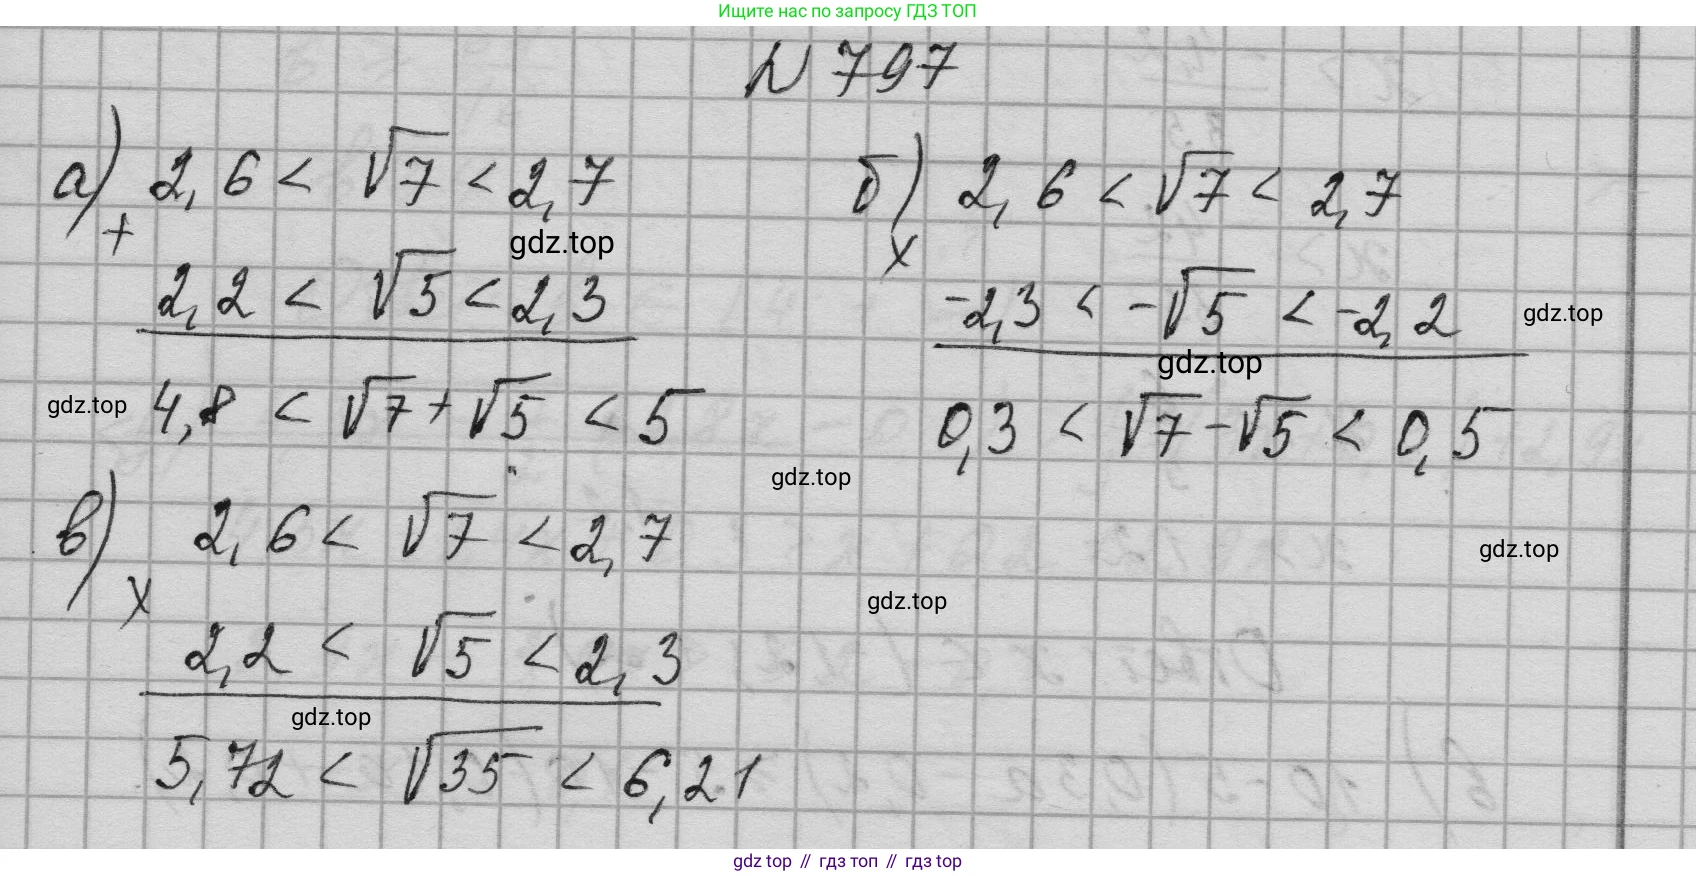 Ищите нас по запросу ГДЗ ТОП
№ 797
а) 2,6 < √7 < 2,7
+
gdz.top
2,2 < √5 < 2,3
gdz.top
4,8 < √7 + √5 < 5
б) 2,6 < √7 < 2,7
х
-2,3 < -√5 < -2,2
gdz.top
gdz.top
0,3 < √7 - √5 < 0,5
gdz.top
в) 2,6 < √7 < 2,7
х
gdz.top
gdz.top
2,2 < √5 < 2,3
gdz.top
5,72 < √35 < 6,21
gdz top // гдз топ // гдз top